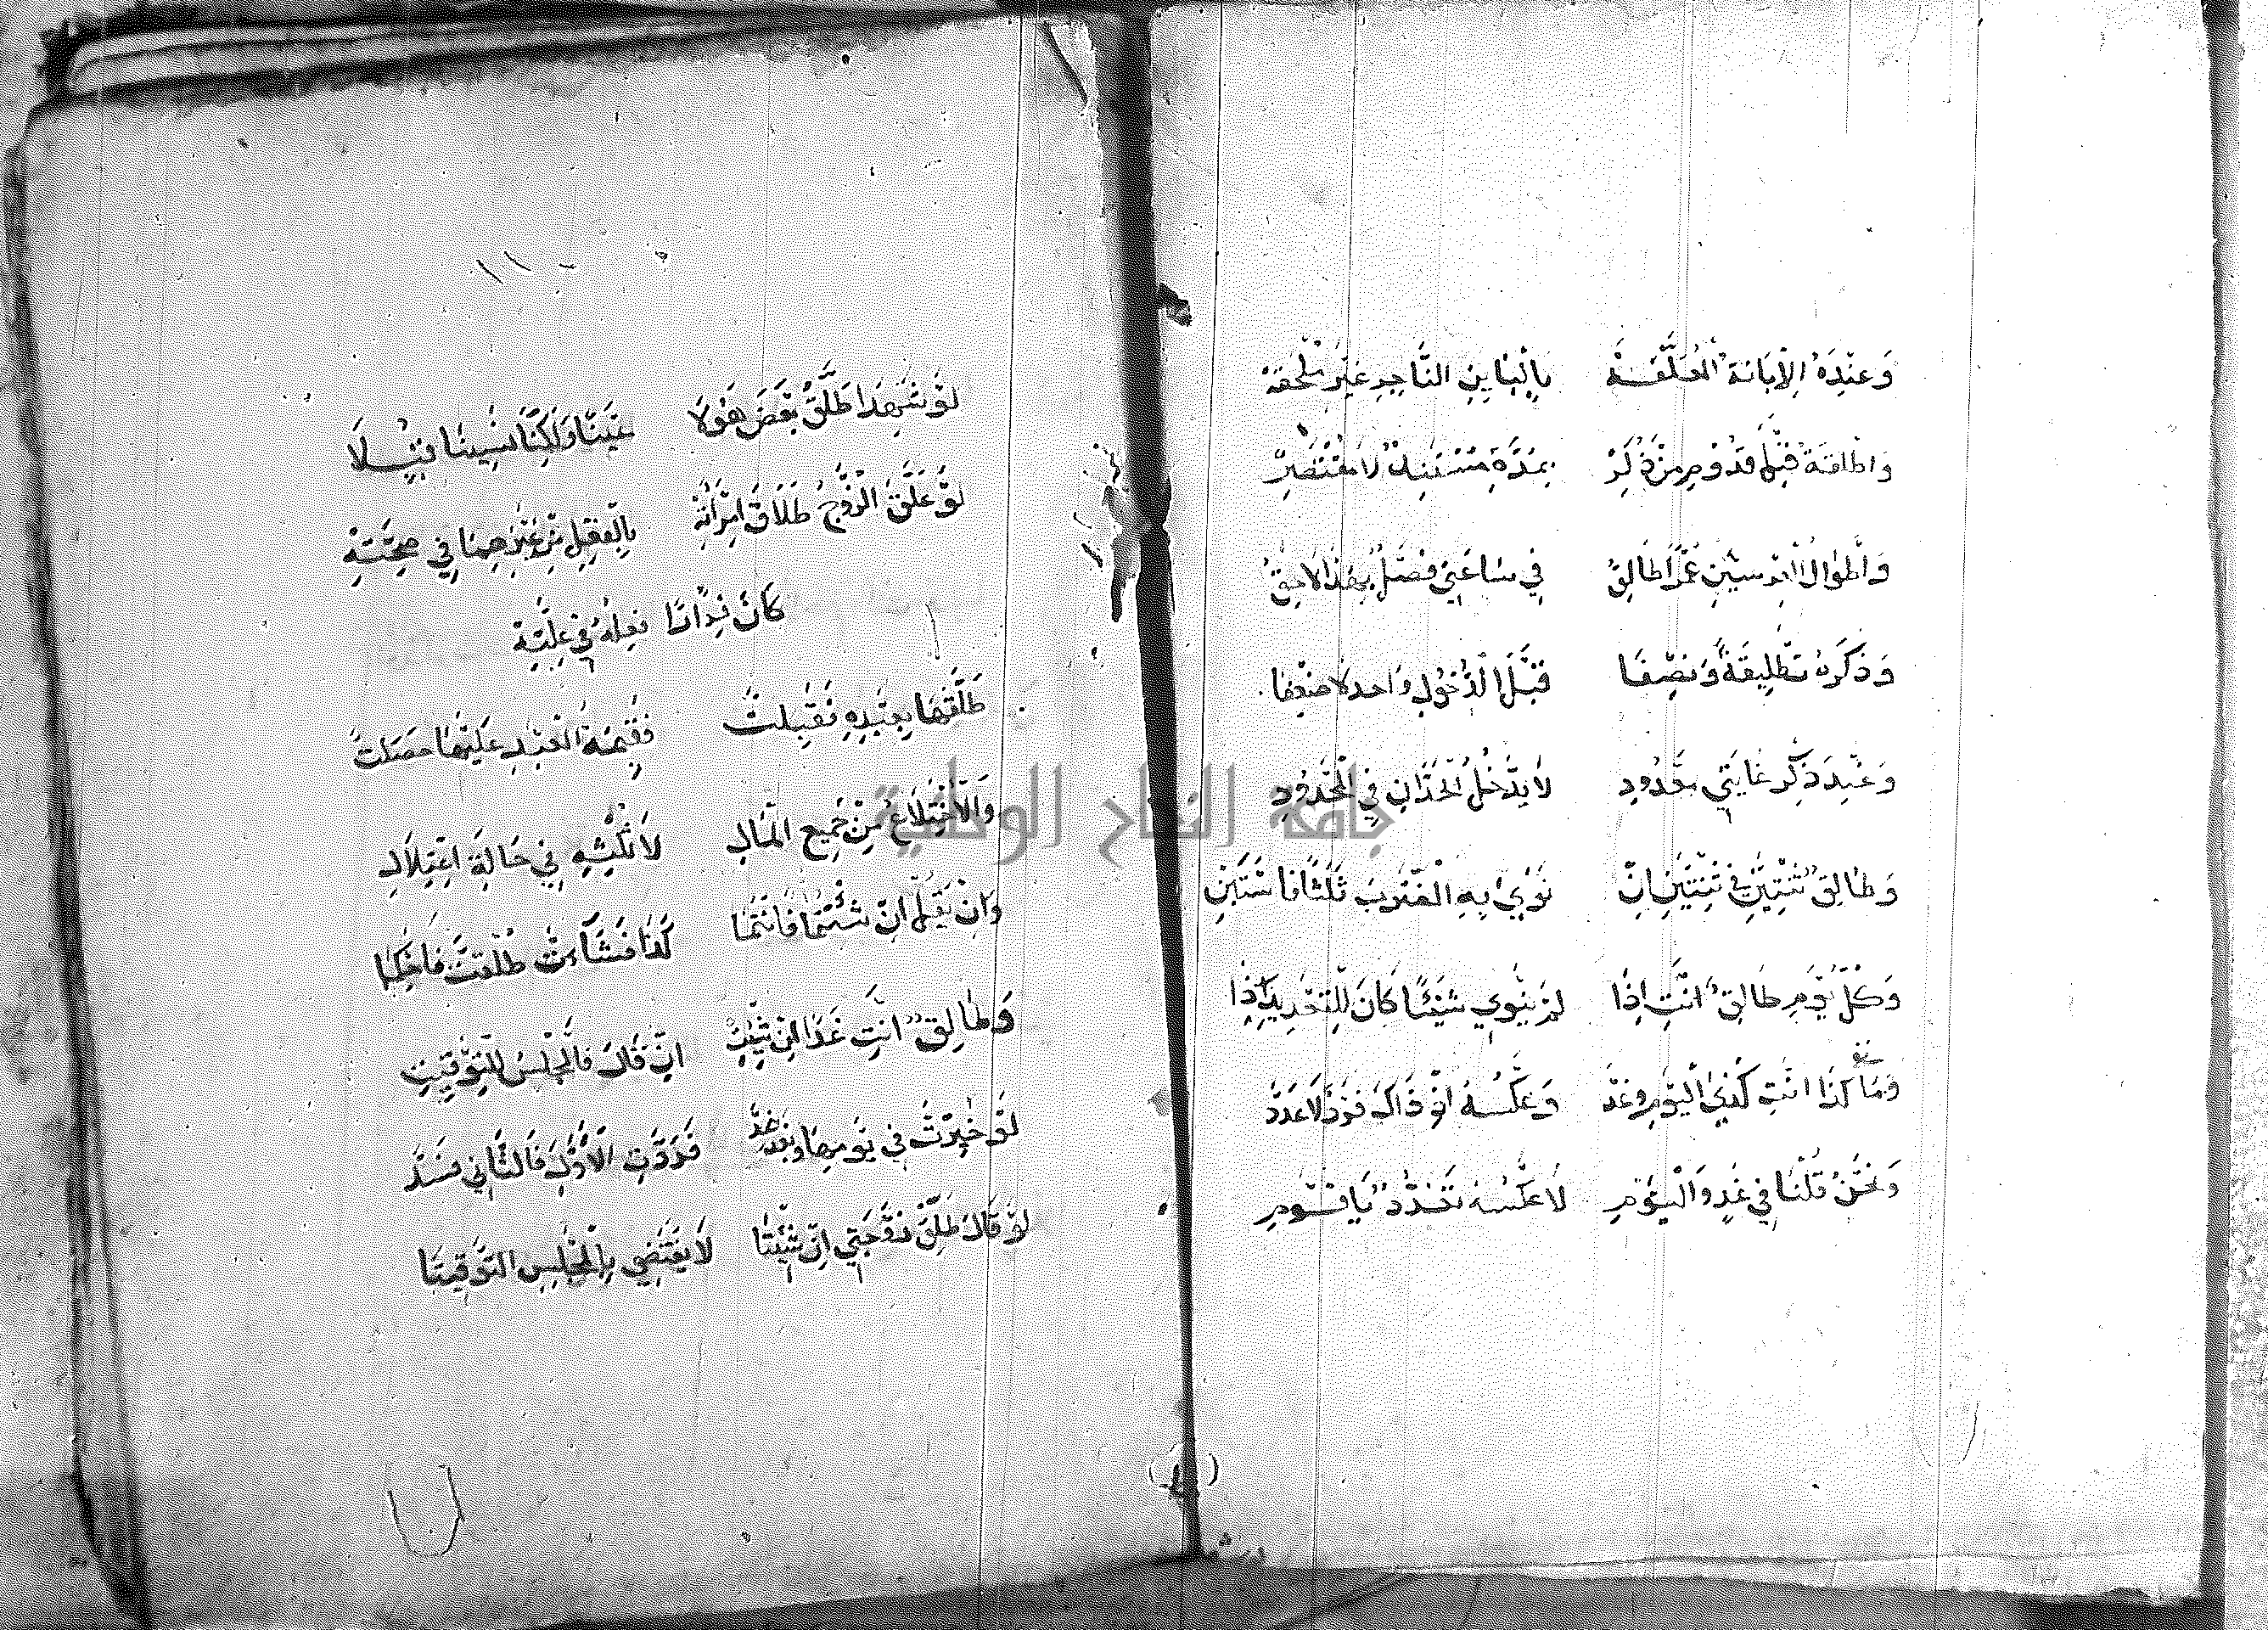 وَعِنْدَهُ الْإِبَانَةُ الْمُعَلَّقَةْ بِالْبَايِنِ النَّاجِزِ غَيْرُ مُلْحَقَةْ
وَاطَالِقَةُ قَبْلَ قُدُومِ مَنْ ذُكِرْ بِمُدَّةٍ لَا مُقْتَصِرْ
وَأَطْوَالُ طَالِقُ فِي سَاعَتِي
وَذِكْرُهُ تَطْلِيقَةً وَنِصْفَا قَبْلَ الدُّخُولِ وَاحِدٌ لَا ضِعْفَا
وَعِنْدَ ذِكْرِ غَايَتَيْ مَحْدُودِ لَا يَدْخُلُ الْحَدَّانِ فِي الْمَحْدُودِ
وَطَالِقٌ ثِنْتَيْنِ فِي ثِنْتَيْنِ إِنْ نَوَى بِهِ الضَّرْبَ ثَلَثًا فَاسْتَبِنْ
وَكُلَّ يَوْمٍ طَالِقٌ أَنْتِ إِذَا لَمْ يَنْوِي شَيْئًا كَانَ لِلتَّحْدِيدِ إِذَا
وَمَا كَذَا أَنْتِ كَذِي الْيَوْمَ وَغَدْ وَعَكْسُهُ أَوْ ذَاكَ فَرْدٌ لَا عَدَدْ
وَنَحْنُ قُلْنَا فِي غَدٍ وَالْيَوْمِ لَا عَكْسُهُ تَعَدُّدٌ يَا قَوْمِ
لَوْ شَهِدَا طَلَّقَ بَعْضَ هَؤُلَا عَيْنًا وَلَكِنَّا نَسِينَا قُبِلَا
لَوْ عَلَّقَ الزَّوْجُ طَلَاقَ امْرَأَتِهْ بِالْفِعْلِ مِنْ غَيْرِهِمَا فِي صِحَّتِهْ
كَانَ فِرَارًا فِعْلُهُ فِي عِلَّتِهْ
طَلَّقَهَا بِعَبْدِهِ فَقَبِلَتْ فَقِيمَةُ الْعَبْدِ عَلَيْهَا حَصَلَتْ
وَالِاخْتِلَاعُ مِنْ جَمِيعِ الْمَالِ لَا ثُلْثِهِ فِي حَالَةِ اعْتِلَالِ
وَإِنْ يَقُلْ إِنْ شِئْتُمَا فَأَنْتُمَا كَذَا فَشَاءَتْ طُلِّقَتْ فَاحْكُمَا
وَطَالِقٌ أَنْتِ غَدًا إِنْ شِئْتِ إِنْ قَالَ فَالْمَجْلِسُ لِلتَّوْقِيتِ
لَوْ خُيِّرَتْ فِي يَوْمِهَا وَبَعْدَ غَدْ فَرَدَّتِ الْأَوَّلَ فَالثَّانِي فَسَدْ
لَوْ قَالَ طَلِّقْ زَوْجَتِي إِنْ شِئْتَا لَا يَقْتَضِي بِالْمَجْلِسِ التَّوْقِيتَا
جامعة النجاح الوطنية